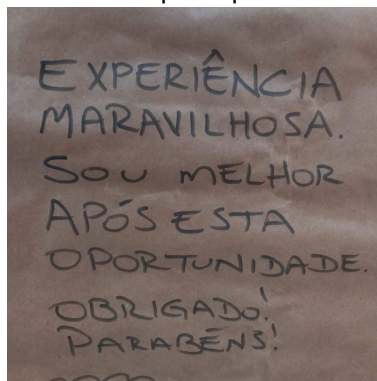 EXPERIÊNCIA
MARAVILHOSA.
SOU MELHOR
APÓS ESTA
OPORTUNIDADE.
OBRIGADO!
PARABÉNS!